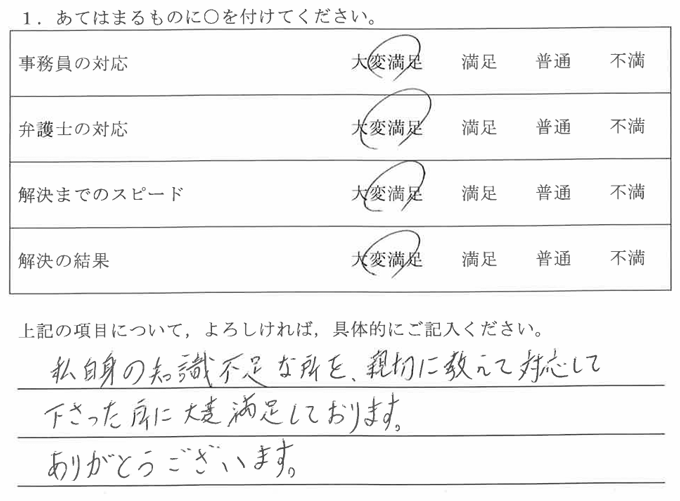 1．あてはまるものに○を付けてください。
事務員の対応 大変満足 満足 普通 不満
弁護士の対応 大変満足 満足 普通 不満
解決までのスピード 大変満足 満足 普通 不満
解決の結果 大変満足 満足 普通 不満
上記の項目について，よろしければ，具体的にご記入ください。
私自身の知識不足な所を、親切に教えて対応して
下さった所に大変満足しております。
ありがとうございます。